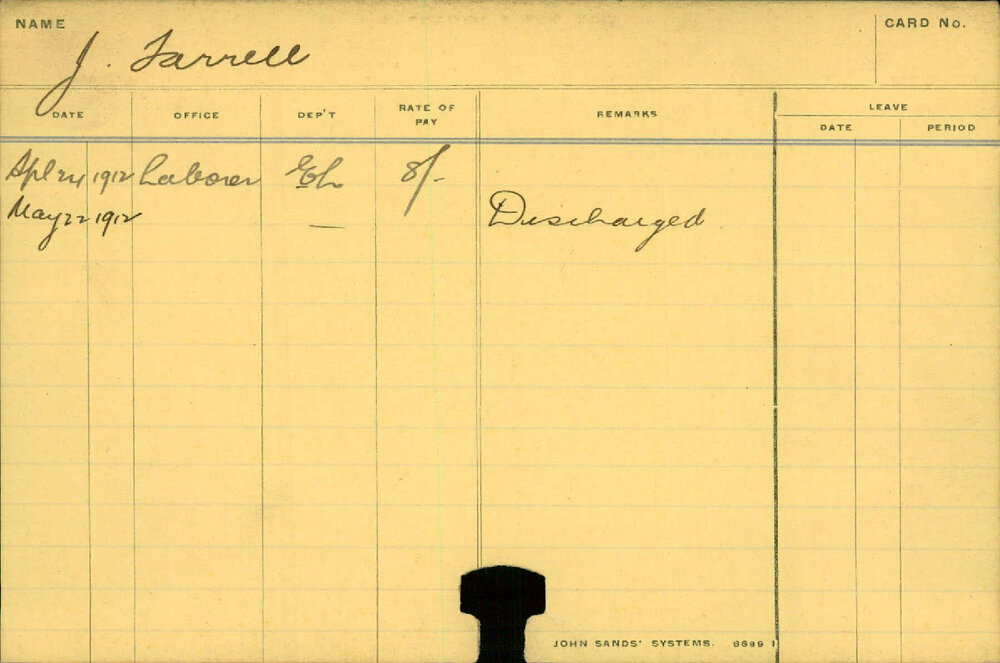 NAME CARD No.
J. Farrell
DATE OFFICE DEP'T RATE OF PAY REMARKS LEAVE
DATE PERIOD
Apl 24 1912 Laborer 8/-
May 22 1912 — Discharged
JOHN SANDS' SYSTEMS. 8689